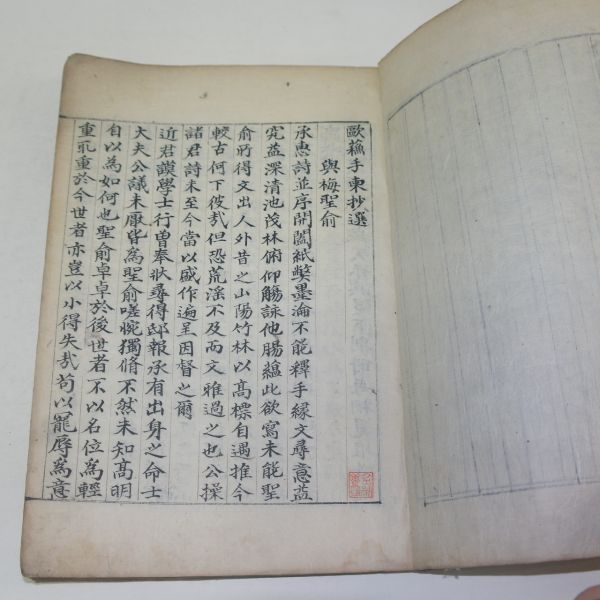 歐蘓手柬抄選
與梅聖俞
承惠詩並序開闔紙獘墨淪不能釋手緣文尋意益
究益深清池茂林俯仰觴詠他腸蘊此欲寫未能聖
俞所得文出人外昔之山陽竹林以高標自遇推今
較古何下彼㦲但恐荒淫不及而文雅過之也公操
諸君詩未至今當以盛作遍呈因督之爾
近君謨學士行曽奉狀尋得邸報承有出身之命士
大夫公議未厭皆為聖俞嗟惋獨脩不然未知高明
自以為如何也聖俞卓卓於後世者不以名位為輕
重乕重於今世者亦豈以小得失㦲苟以寵辱為意